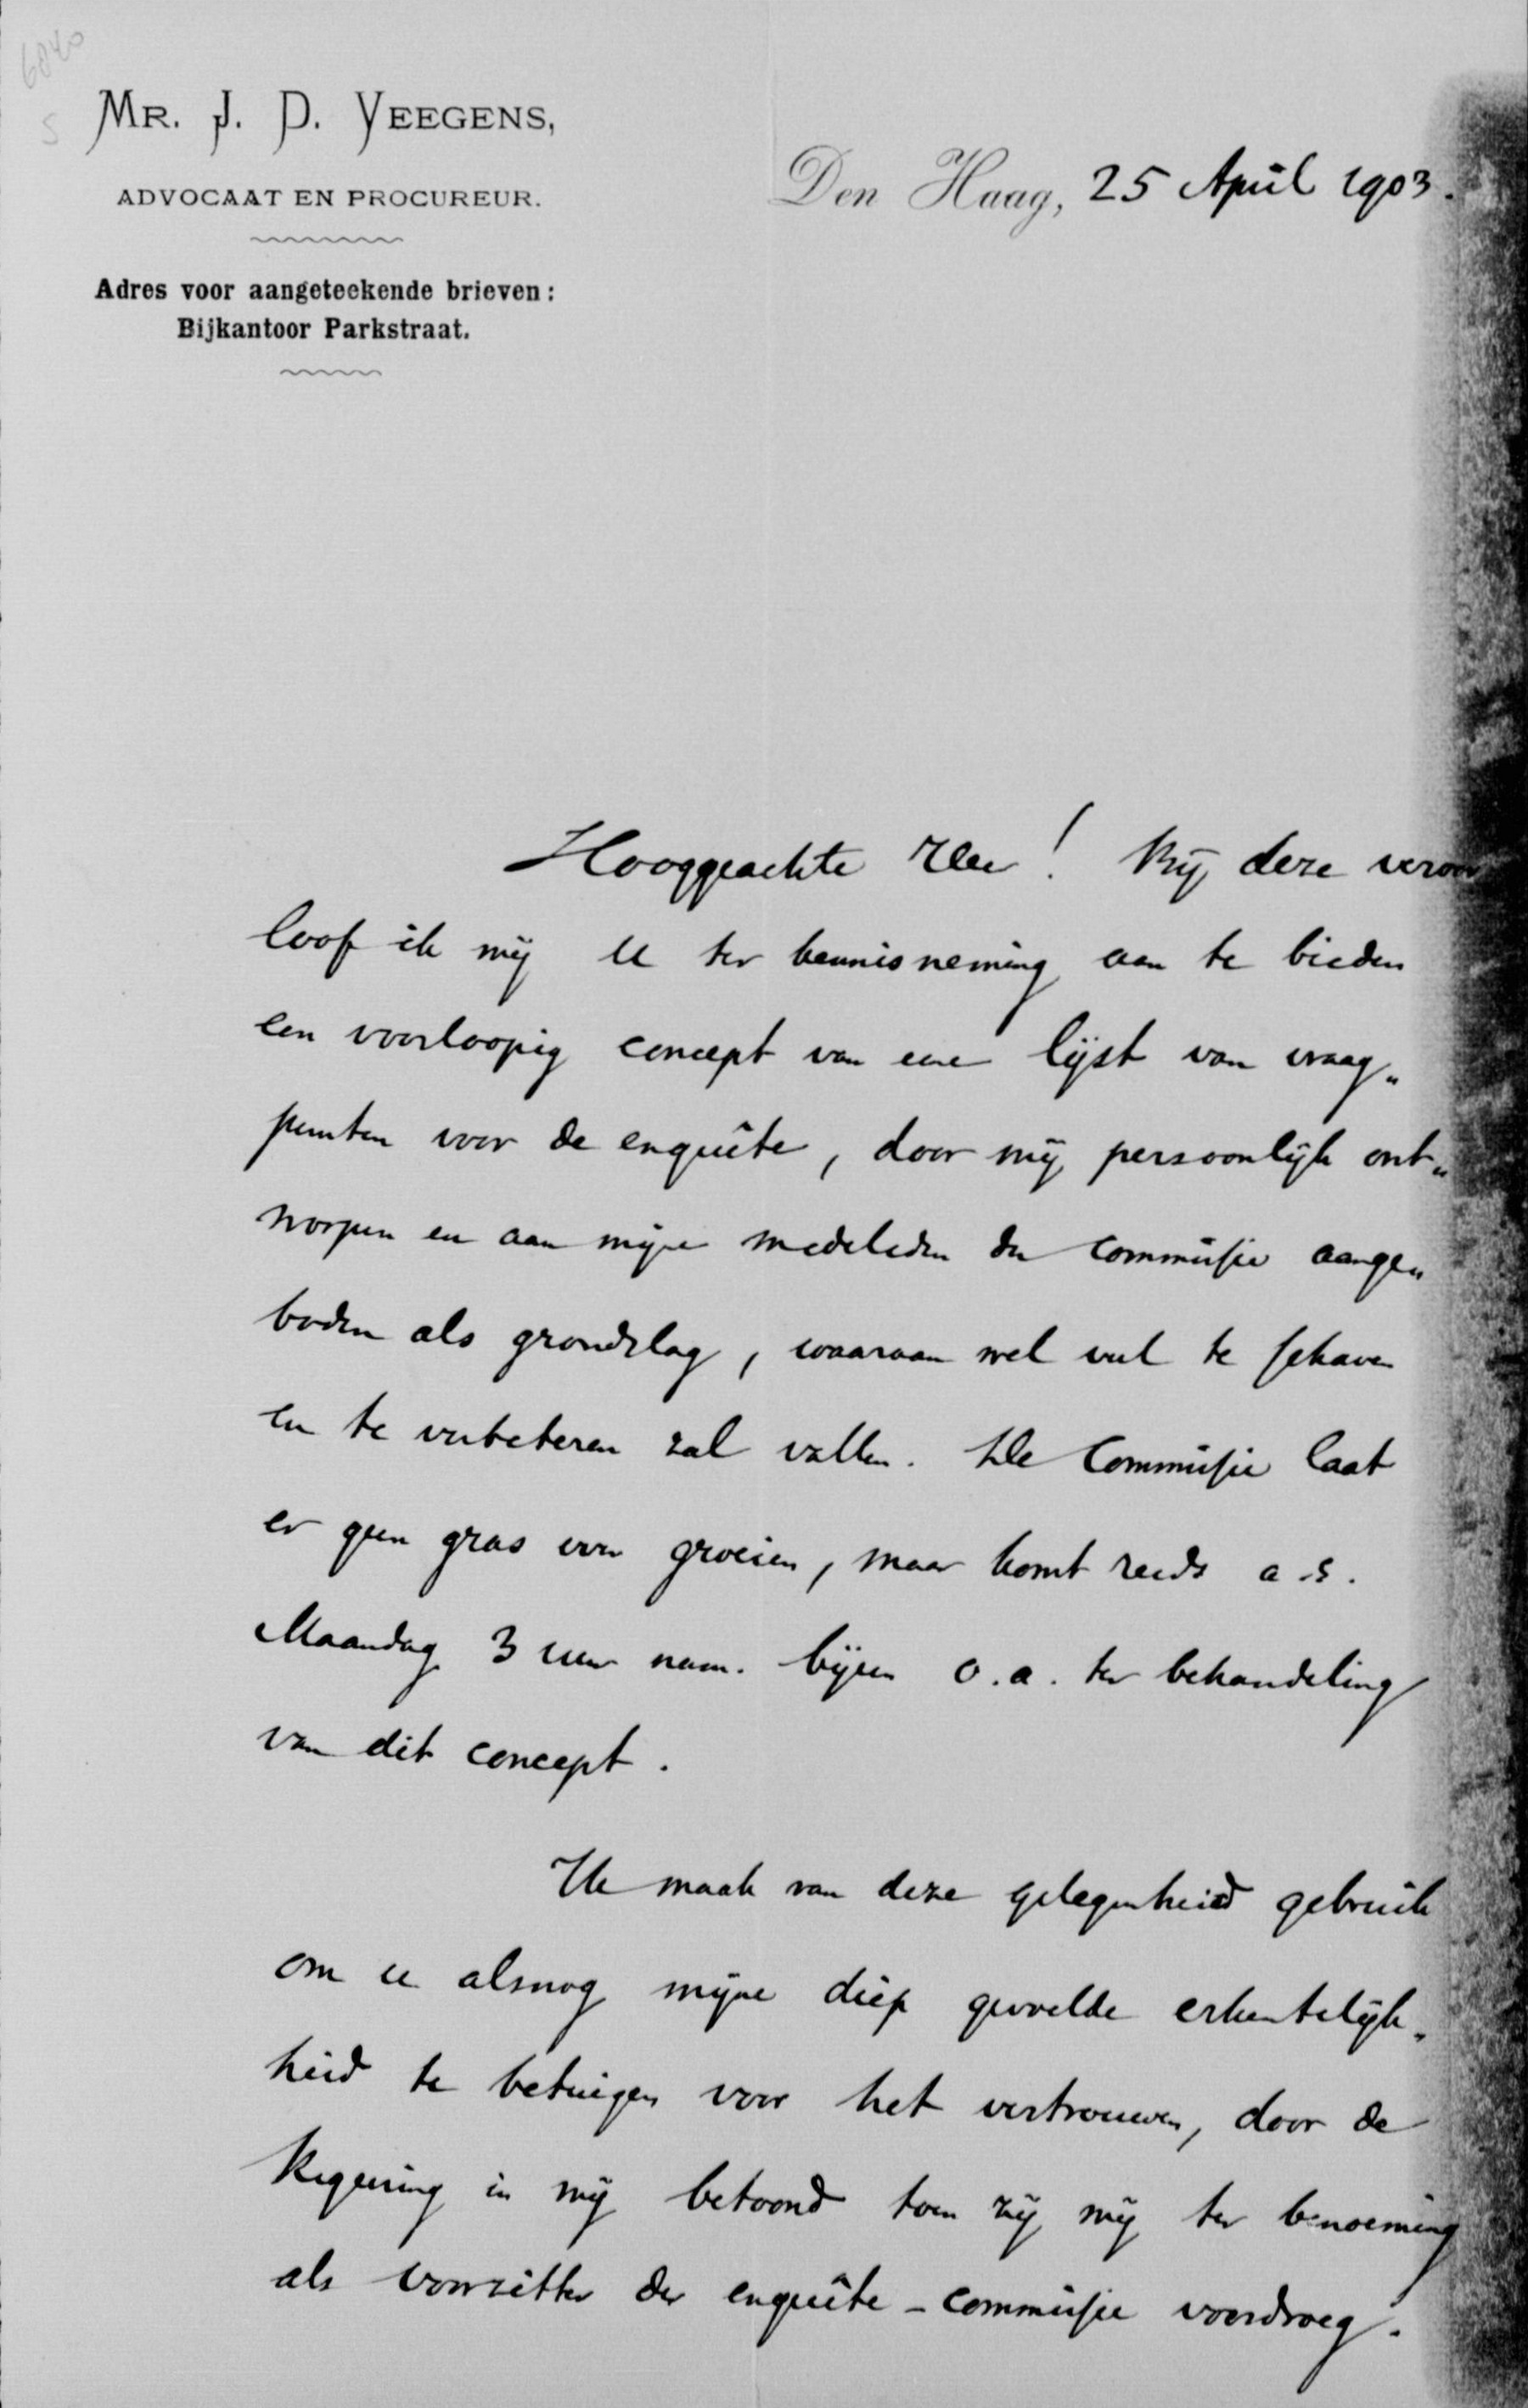 6040
5
MR. J. D. VEEGENS,
ADVOCAAT EN PROCUREUR.
Adres voor aangeteekende brieven:
Bijkantoor Parkstraat.
Den Haag, 25 April 1903.
Hooggeachte Heer! Bij deze veroor
loof ik mij U ter kennisneming aan te bieden
een voorloopig concept van eene lijst van vraag„
punten voor de enquête, door mij persoonlijk ont„
worpen en aan mijne medeleden der Commissie aange„
boden als grondslag, waaraan wel veel te schaven
en te verbeteren zal vallen. De Commissie laat
er geen gras over groeien, maar komt reeds a.s.
Maandag 3 uur nam. bijeen o.a. ter behandeling
van dit concept.
Ik maak van deze gelegenheid gebruik
om u alsnog mijne diep gevoelde erkentelijk„
heid te betuigen voor het vertrouwen, door de
Regeering in mij betoond toen zij mij ter benoeming
als voorzitter der enquête-commissie voordroeg.